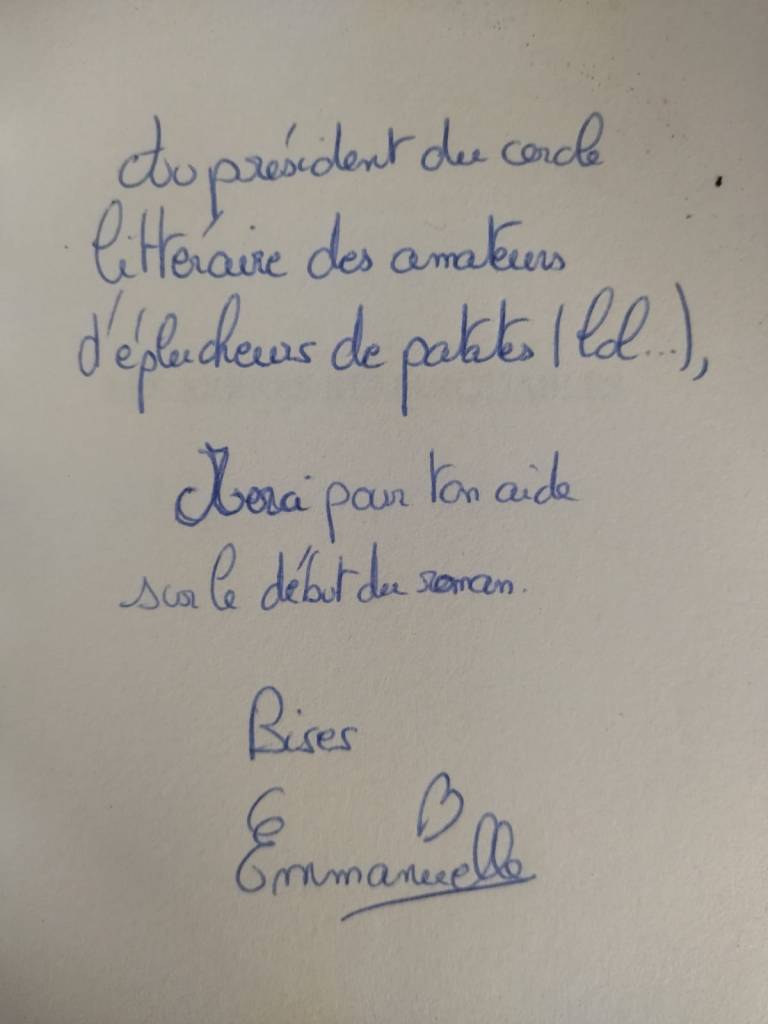 Au président du cercle
littéraire des amateurs
d'éplucheurs de patates (lol...),
Merci pour ton aide
sur le début du roman.
Bises
B
Emmanuelle